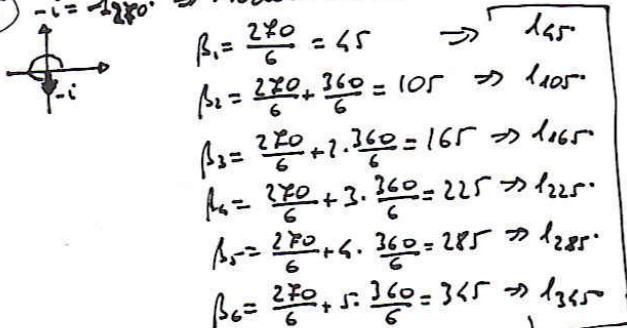 -i = 1₂₇₀°
-i
β₁ = 270/6 = 45 ⇒ 1₄₅°
β₂ = 270/6 + 360/6 = 105 ⇒ 1₁₀₅°
β₃ = 270/6 + 2·360/6 = 165 ⇒ 1₁₆₅°
β₄ = 270/6 + 3·360/6 = 225 ⇒ 1₂₂₅°
β₅ = 270/6 + 4·360/6 = 285 ⇒ 1₂₈₅°
β₆ = 270/6 + 5·360/6 = 345 ⇒ 1₃₄₅°